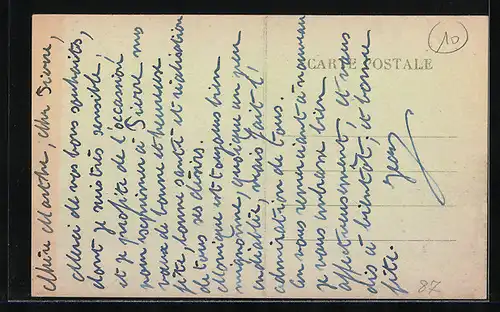 Chère Marthe, cher Pierre,
Merci de vos bons souhaits,
dont je suis très sensible,
et je profite de l'occasion
pour exprimer à Pierre mes
vœux de bonne et heureuse
fête, bonne santé et réalisation
de tous ses désirs.
Monique est toujours bien
mignonne, quoique un peu
endiablée, mais fait l'
admiration de tous.
En vous remerciant à nouveau
je vous embrasse bien
affectueusement, et vous
dis à bientôt, et bonne
fête.
Jean
CARTE POSTALE
10
87